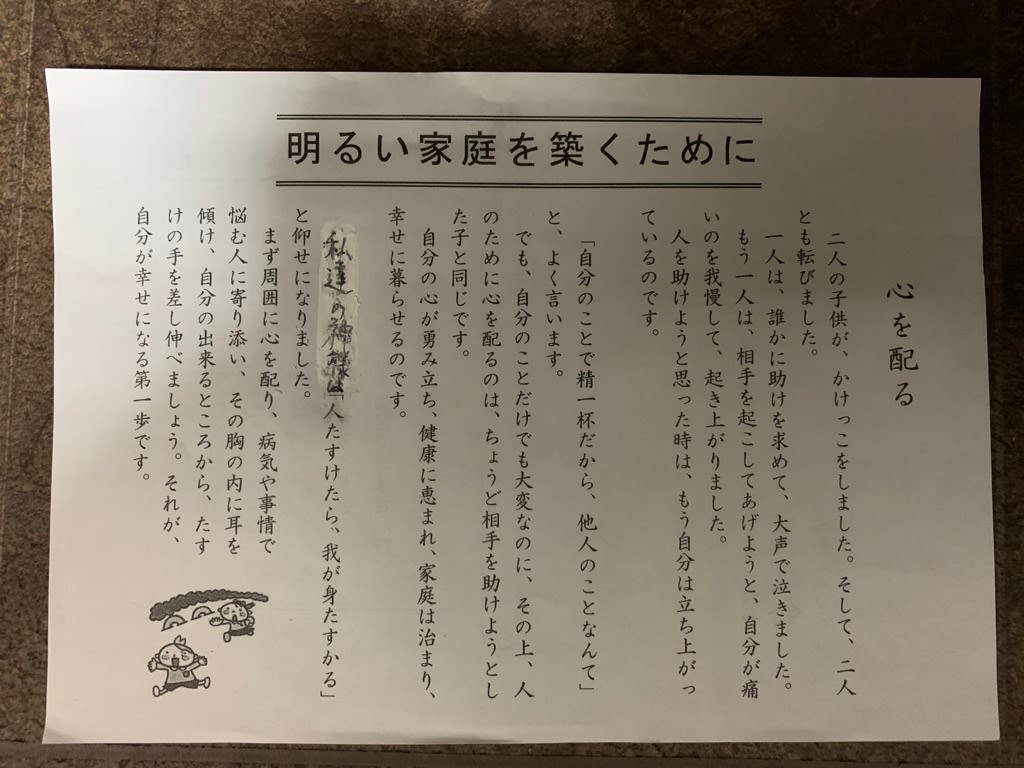 明るい家庭を築くために
心を配る
二人の子供が、かけっこをしました。そして、二人
とも転びました。
一人は、誰かに助けを求めて、大声で泣きました。
もう一人は、相手を起こしてあげようと、自分が痛
いのを我慢して、起き上がりました。
人を助けようと思った時は、もう自分は立ち上がっ
ているのです。
「自分のことで精一杯だから、他人のことなんて」
と、よく言います。
でも、自分のことだけでも大変なのに、その上、人
のために心を配るのは、ちょうど相手を助けようとし
た子と同じです。
自分の心が勇み立ち、健康に恵まれ、家庭は治まり、
幸せに暮らせるのです。
私達の神様は「人たすけたら、我が身たすかる」
と仰せになりました。
まず周囲に心を配り、病気や事情で
悩む人に寄り添い、その胸の内に耳を
傾け、自分の出来るところから、たす
けの手を差し伸べましょう。それが、
自分が幸せになる第一歩です。